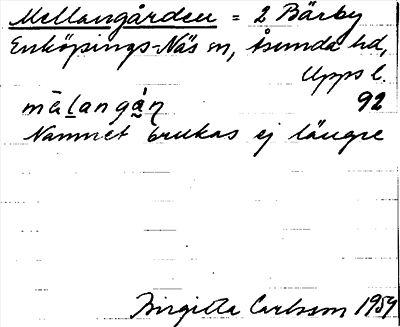 Mellangården = 2 Bärby
Enköpings-Näs sn, Åsunda hd,
Upps l.
mälangán 92
Namnet brukas ej längre
Birgitta Carlsson 1959